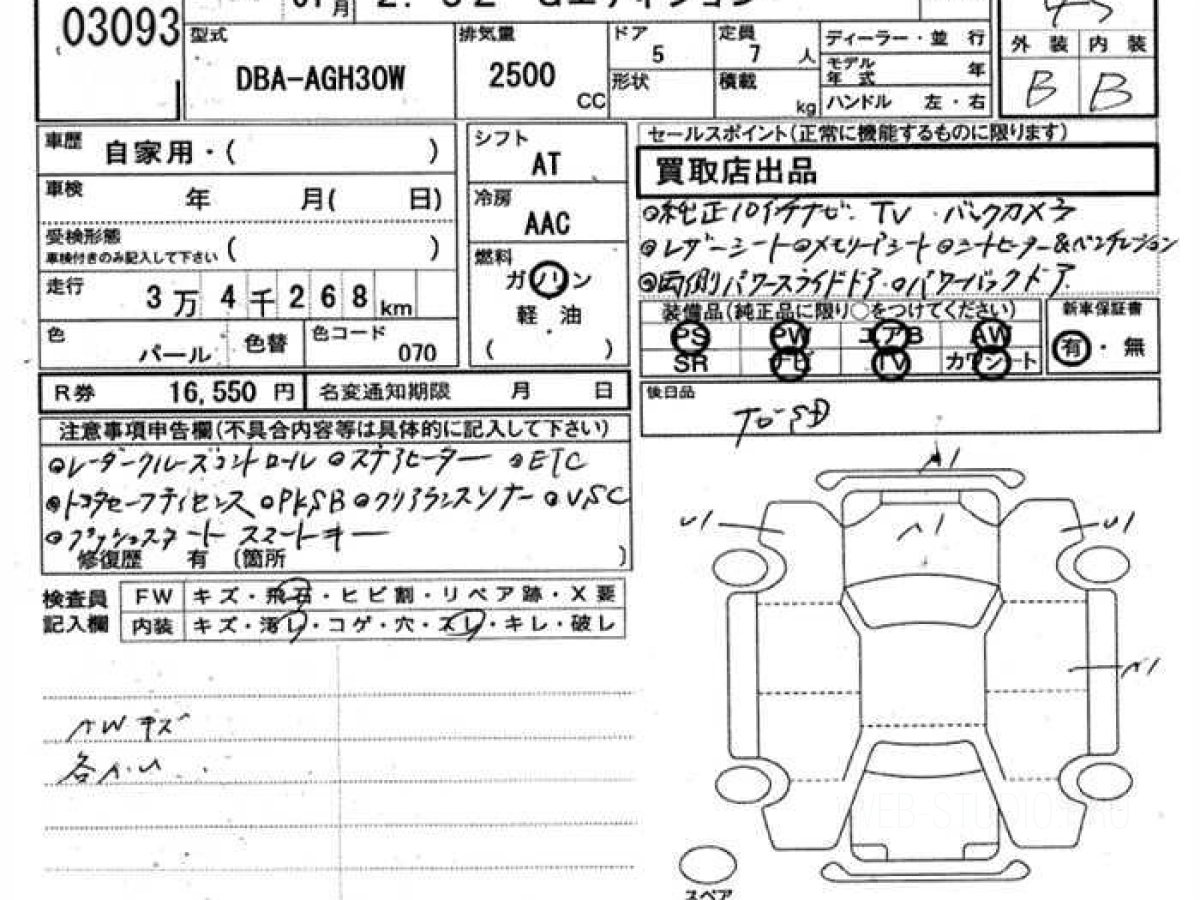 03093
月
型式
DBA-AGH30W
排気量
2500
CC
ドア
5
定員
7 人
形状
積載
kg
ディーラー・並 行
モデル年式 年
ハンドル 左・右
外 装 内 装
B B
車歴 自家用・( )
車検 年 月( 日)
受検形態
車検付きのみ記入して下さい ( )
走行 3万4千268km
色 パール 色替 色コード 070
シフト
AT
冷房
AAC
燃料
ガソリン
軽・油
( )
セールスポイント(正常に機能するものに限ります)
買取店出品
◎純正10インチナビ. TV ・バックカメラ
◎レザーシート◎メモリーシート◎シートヒーター&ベンチレーション
◎両側パワースライドドア.◎パワーバックドア
装備品(純正品に限り○をつけてください)
PS PW エアB AW
SR ナビ TV カワシート
新車保証書
有・無
R券 16,550 円 名変通知期限 月 日
後日品
注意事項申告欄(不具合内容等は具体的に記入して下さい)
◎レーダークルーズコントロール ◎ステアヒーター ◎ETC
◎トヨタセーフティセンス ◎PKSB◎クリアランスソナー◎VSC
◎プッシュスタート スマートキー
修復歴 有 (箇所 )
検査員
記入欄
FW キズ・飛石・ヒビ割・リペア跡・X要
内装 キズ・汚レ・コゲ・穴・スレ・キレ・破レ
AWキズ
A1
A1
U1
U1
A1
スペア
WEB-STUDIO3.RU